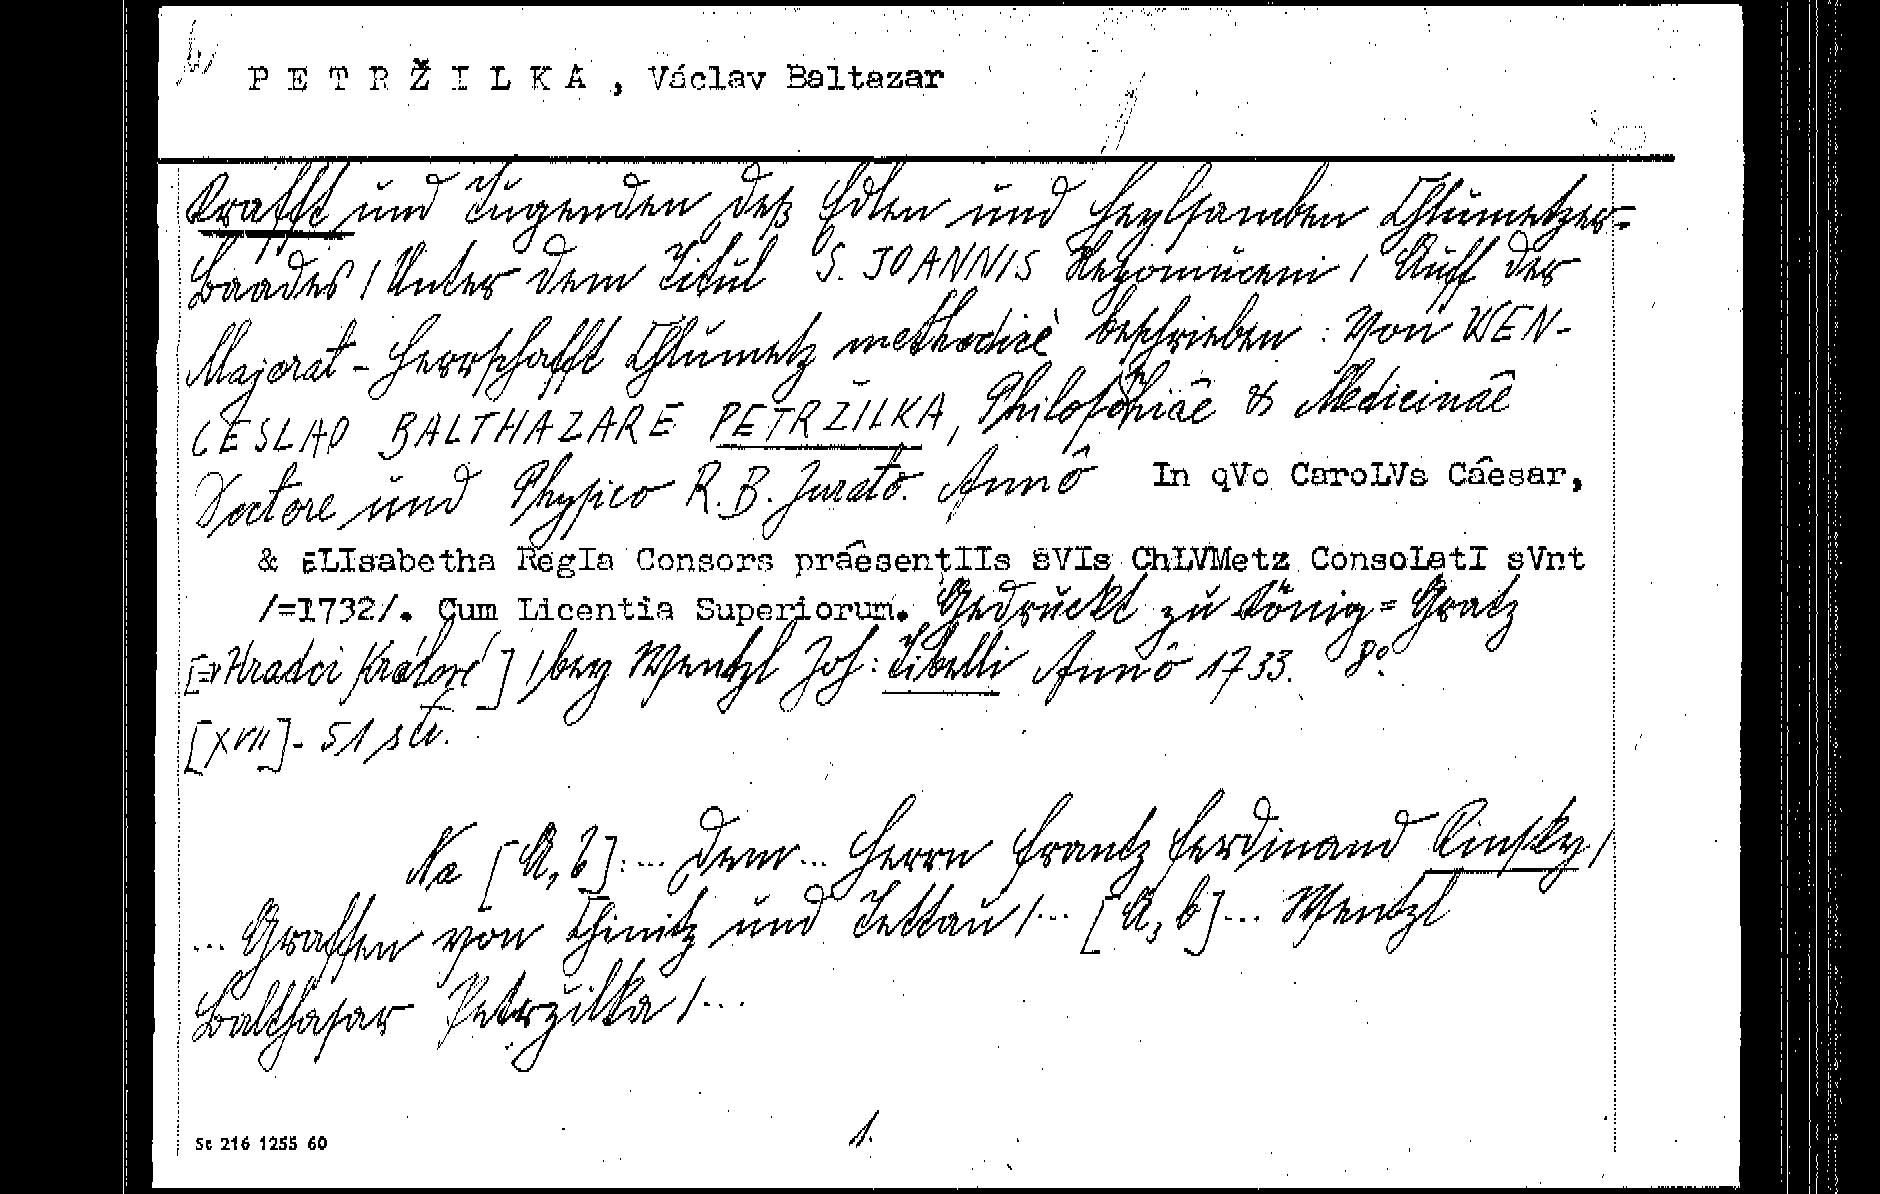 PETRŽILKA, Václav Baltazar
Krafft und Tugenden deß Edlen und Heylsamben Chlumetzer=
Baades / Unter dem Titul S. JOANNIS Nepomuceni / Auff der
Majorat-Herrschafft Chlumetz methodicè beschrieben: Von WEN-
CESLAO BALTHAZARE PETRŽILKA, Philosophiâe & Medicinâe
Doctore und Physico R.B. Jurato. Annô In qVo CaroLVs Câesar,
& ELIsabetha RegIa Consors prâesentIIs sVIs ChLVMetz ConsoLatI sVnt
/=1732/. Cum Licentia Superiorum. Gedruckt zu König=Gratz
[=v Hradci Králové] / bey Wentzl Joh: Tibelli Annô 1733. 8°
[XVII]- 51 str.
Na [A, b]: ... Dem ... Herrn Frantz Ferdinand Kinsky /
... Graffen von Chinitz und Tettau / ... [A, b] ... Wentzl
Balthasar Petržilka / ...
1.
St 216 1255 60